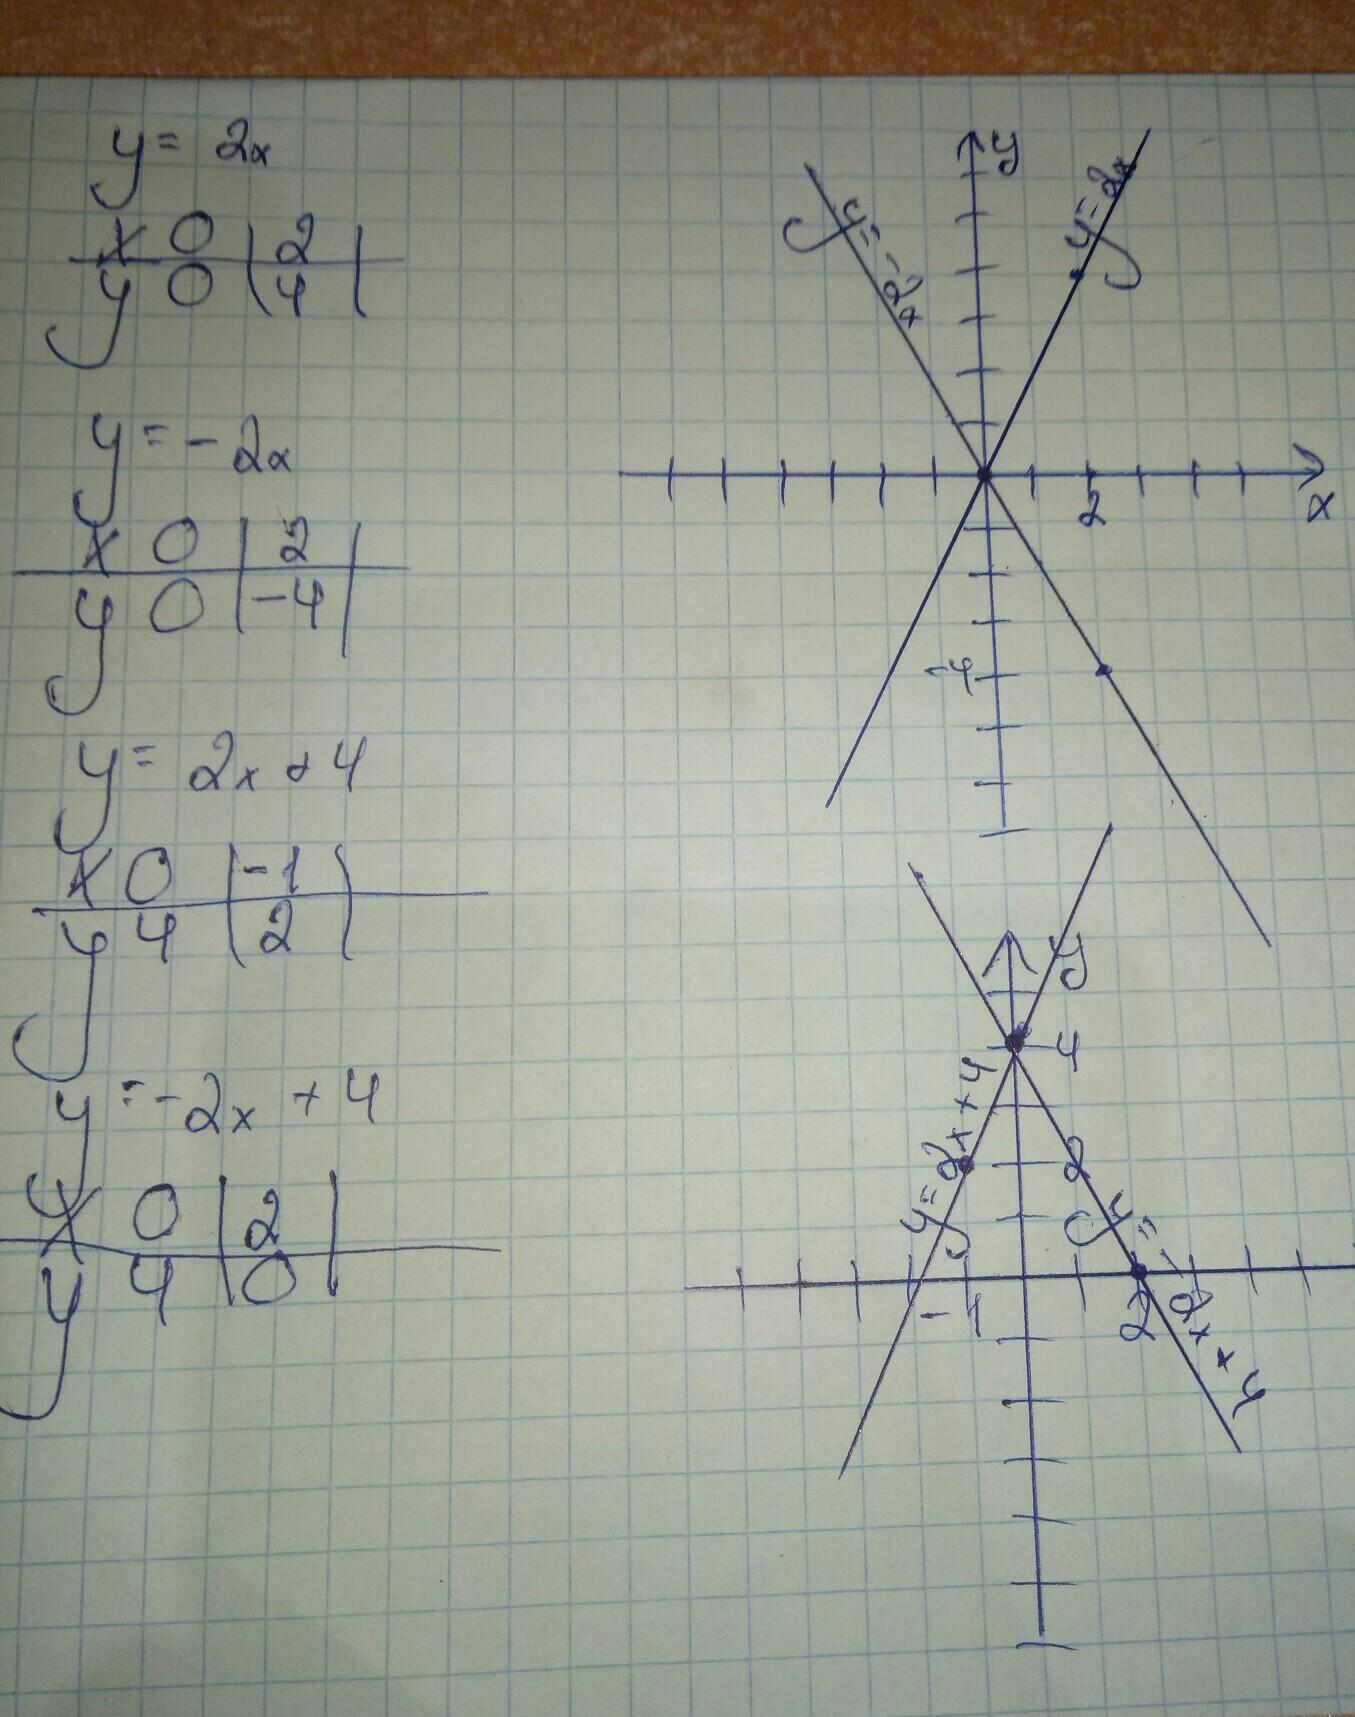 y = 2x
x 0 | 2 |
y 0 | 4 |
y = -2x
x 0 | 2 |
y 0 | -4 |
y = 2x + 4
x 0 | -1 |
y 4 | 2 |
y = -2x + 4
x 0 | 2 |
y 4 | 0 |
y
y = -2x
y = 2x
2
x
-4
y
4
y = 2x + 4
2
y = -2x + 4
-1
2